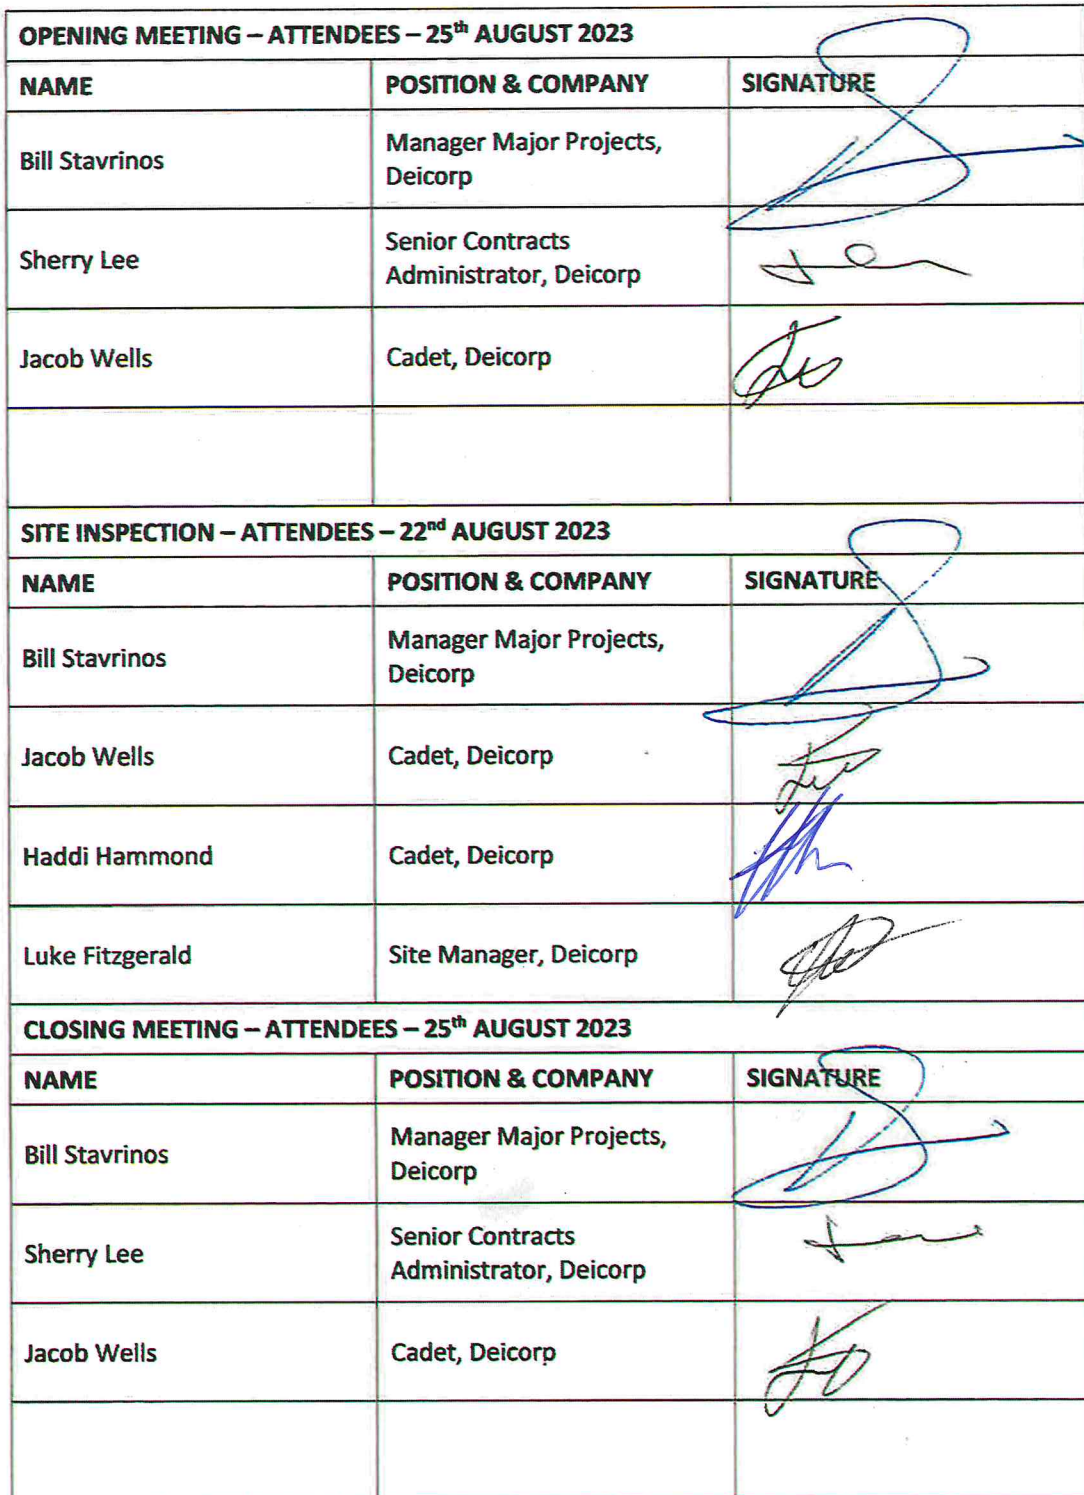 OPENING MEETING – ATTENDEES – 25th AUGUST 2023
NAME POSITION & COMPANY SIGNATURE
Bill Stavrinos Manager Major Projects,
Deicorp
Sherry Lee Senior Contracts
Administrator, Deicorp
Jacob Wells Cadet, Deicorp
SITE INSPECTION – ATTENDEES – 22nd AUGUST 2023
NAME POSITION & COMPANY SIGNATURE
Bill Stavrinos Manager Major Projects,
Deicorp
Jacob Wells Cadet, Deicorp
Haddi Hammond Cadet, Deicorp
Luke Fitzgerald Site Manager, Deicorp
CLOSING MEETING – ATTENDEES – 25th AUGUST 2023
NAME POSITION & COMPANY SIGNATURE
Bill Stavrinos Manager Major Projects,
Deicorp
Sherry Lee Senior Contracts
Administrator, Deicorp
Jacob Wells Cadet, Deicorp